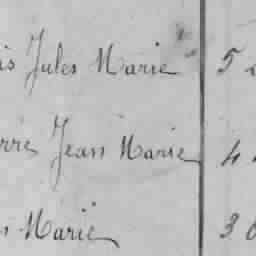 is Jules Marie 5
rre Jean Marie 4
s Marie 3